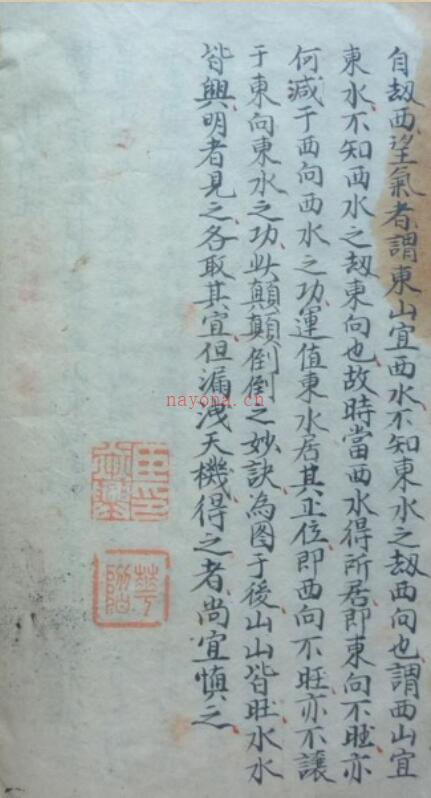 自刼西望氣者謂東山宜西水不知東水之刼西向也謂西山宜
東水不知西水之刼東向也故時當西水得所居即東向不旺亦
何减于西向西水之功運值東水居其正位即西向不旺亦不讓
于東向東水之功此顛顛倒倒之妙訣為图于後山山皆旺水水
皆興明者見之各取其宜但漏洩天機得之者尚宜慎之
nayona.cn